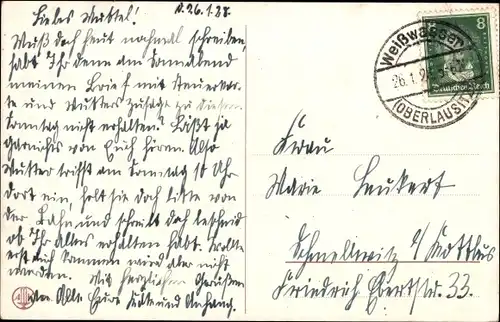 Liebes Muttel! d. 26.1.28.
Muß doch heut nochmal schreiben,
habt Ihr denn am Sonnabend
meinen Brief mit Steuerkar-
te und Mutters Zusage zu diesem
Sonntag nicht erhalten? Läßt ja
garnichts von Euch hören. Also
Mutter trifft am Sonntag 10 Uhr
dort ein, holt sie doch bitte von
der Bahn und schreibt doch bescheid
ob Ihr Alles erhalten habt. Wollte
erst mit kommen wird aber nicht
werden. Mit herzlichen Grüßen
an Alle Eure und Anhang.
Weißwasser
26.1.28
(OBERLAUSITZ)
8
Deutsches Reich
Frau
Marie Leukert
Schmellwitz b/ Kottbus
Friedrich Ebertstr. 33.